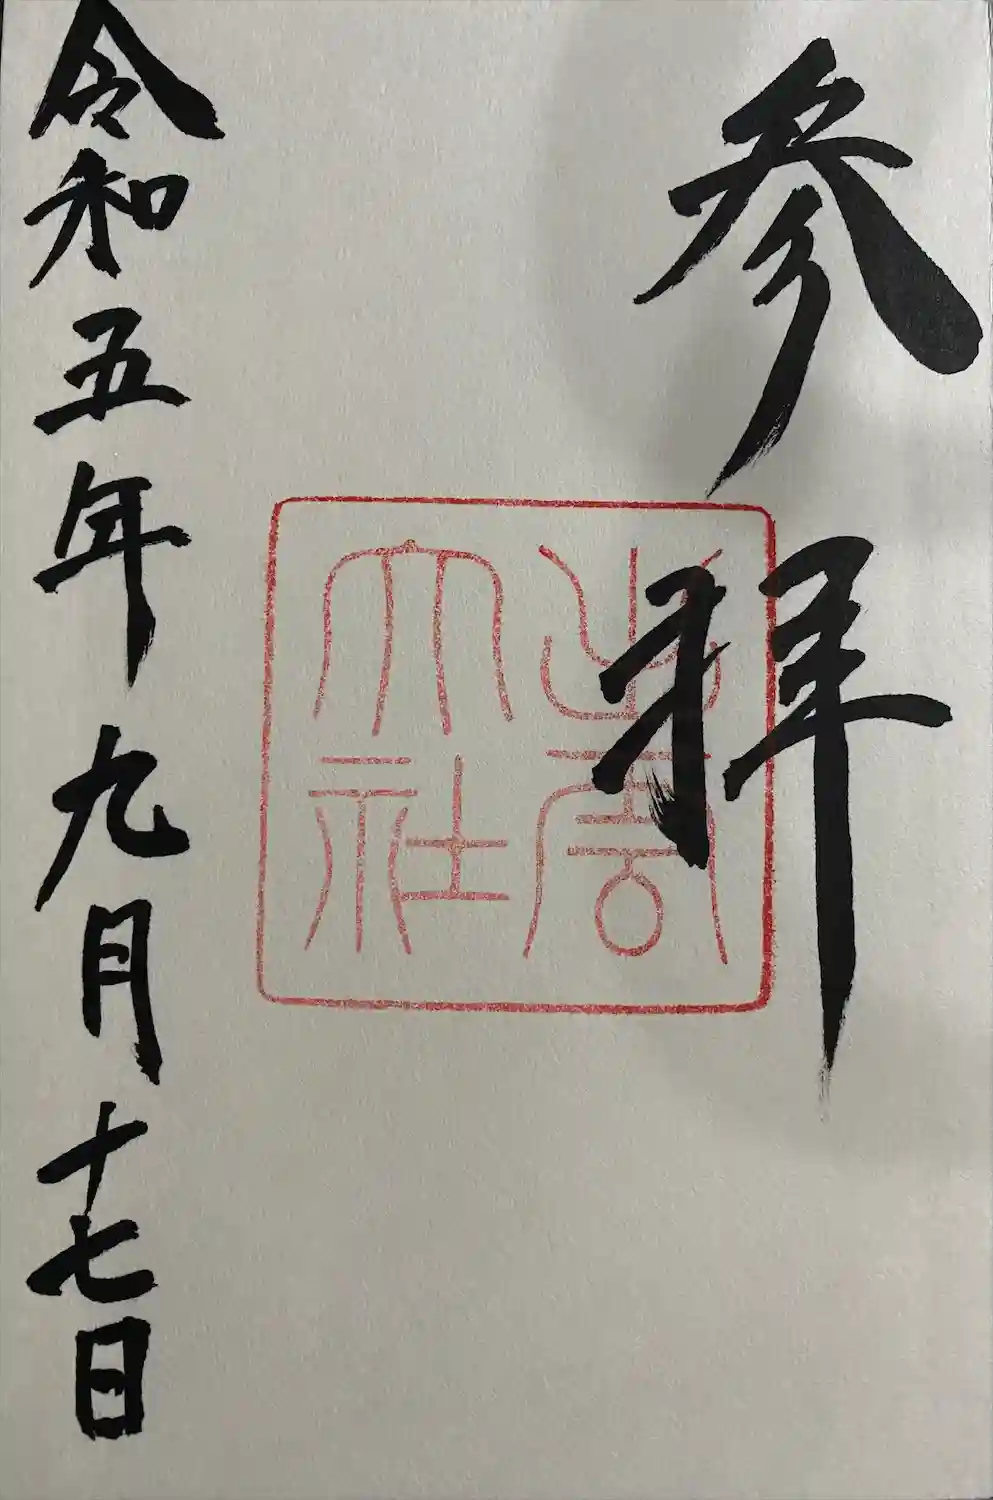 参拝
出雲大社
令和五年九月十七日